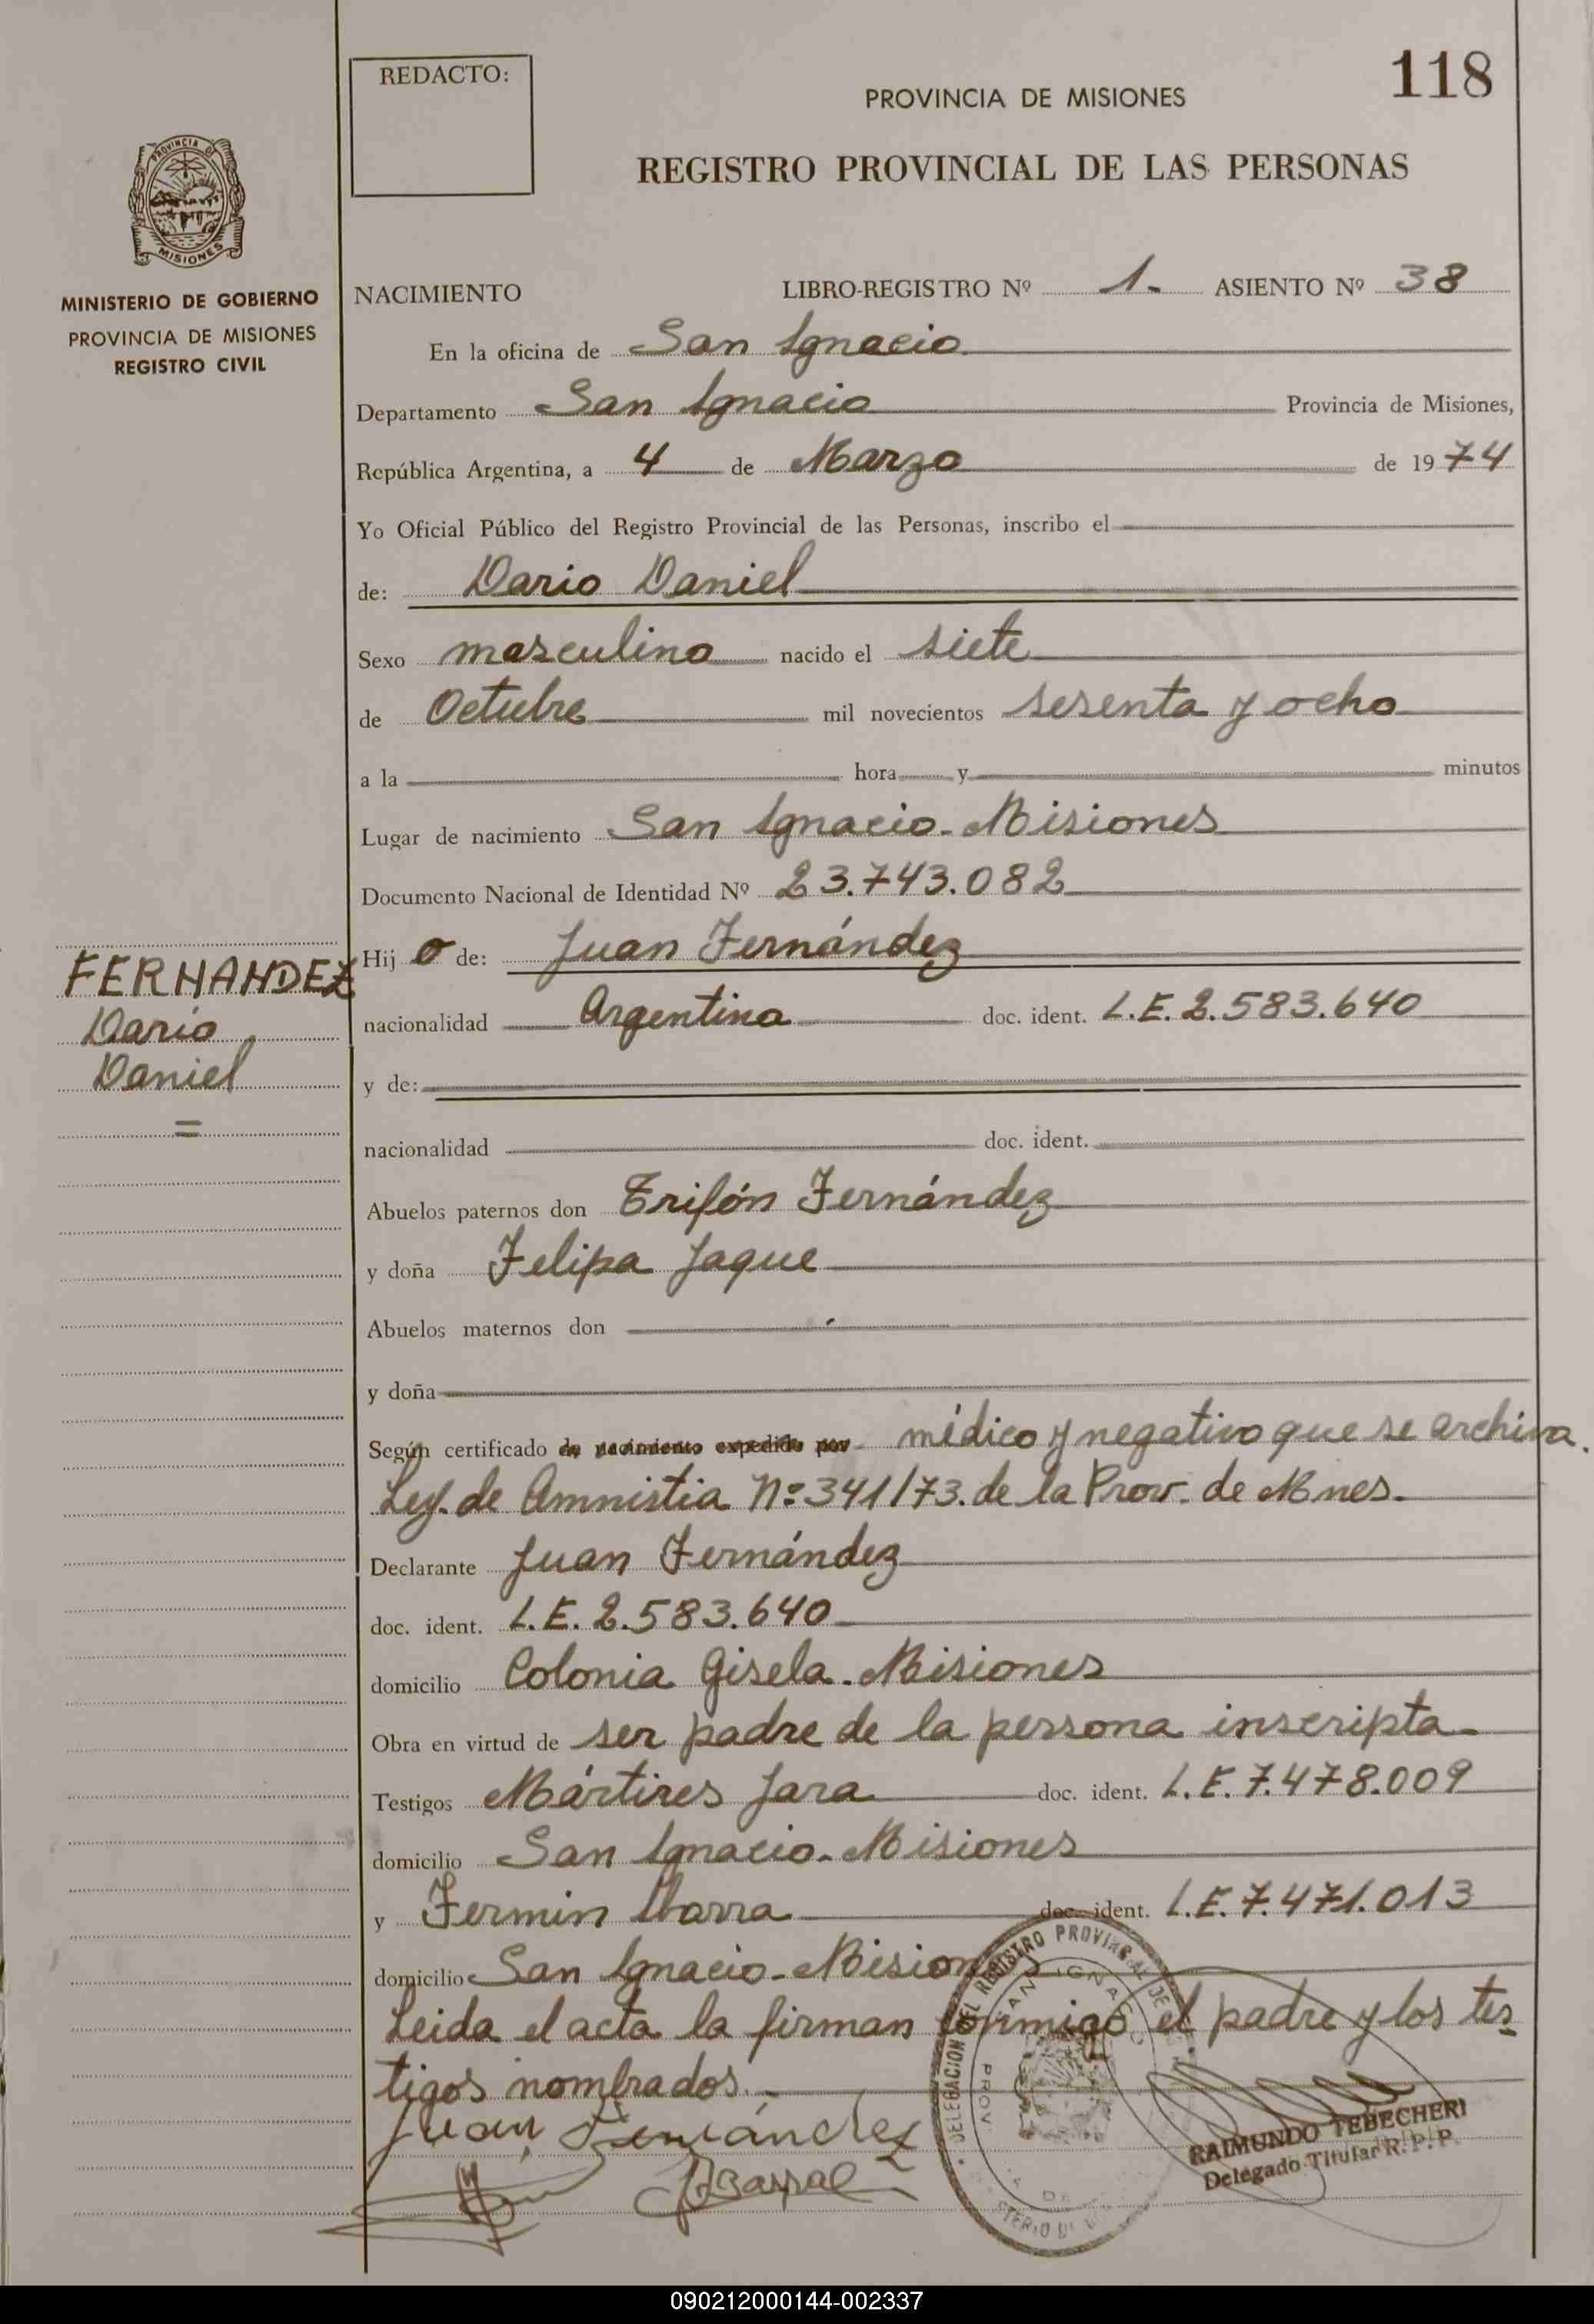 118
REDACTO:
PROVINCIA DE MISIONES
REGISTRO PROVINCIAL DE LAS PERSONAS
PROVINCIA DE
MISIONES
MINISTERIO DE GOBIERNO
PROVINCIA DE MISIONES
REGISTRO CIVIL
NACIMIENTO LIBRO-REGISTRO Nº 1. ASIENTO Nº 38
En la oficina de San Ignacio
Departamento San Ignacio Provincia de Misiones,
República Argentina, a 4 de Marzo de 1974
Yo Oficial Público del Registro Provincial de las Personas, inscribo el
de: Dario Daniel
Sexo masculino nacido el siete
de Octubre mil novecientos sesenta y ocho
a la hora y minutos
Lugar de nacimiento San Ignacio - Misiones
Documento Nacional de Identidad Nº 23.743.082
Hijo de: Juan Fernández
FERNANDEZ
Dario
Daniel
=
nacionalidad Argentina doc. ident. L.E. 2.583.640
y de:
nacionalidad doc. ident.
Abuelos paternos don Trifón Fernández
y doña Felipa Jaque
Abuelos maternos don
y doña
Según certificado de nacimiento expedido por médico y negativo que se archiva.
Ley. de Amnistia Nº 341/73. de la Prov. de Mnes.
Declarante Juan Fernández
doc. ident. L.E. 2.583.640
domicilio Colonia Gisela - Misiones
Obra en virtud de ser padre de la persona inscripta
Testigos Mártires Jara doc. ident. L.E. 7.478.009
domicilio San Ignacio - Misiones
y Fermin Ibarra doc. ident. L.E. 7.471.013
domicilio San Ignacio - Misiones
Leida el acta la firman conmigo el padre y los tes
tigos nombrados.
Juan Fernández
DELEGACION DEL REGISTRO PROVINCIAL DE
SAN IGNACIO
PROV.
RAIMUNDO TEBECHERI
Delegado Titular R. P. P.
090212000144-002337